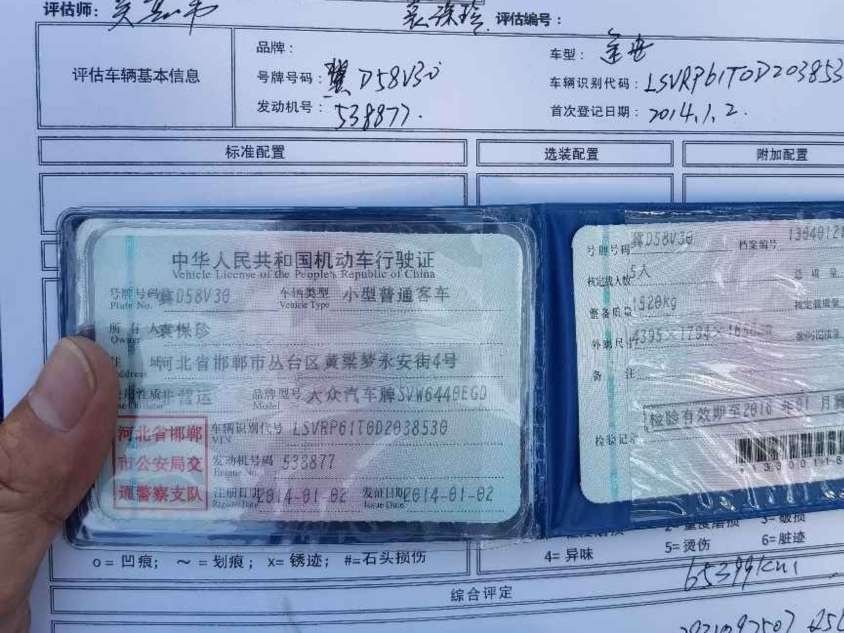 评估师：
评估编号：
评估车辆基本信息
品牌：
车型：
号牌号码：冀D58V30
车辆识别代码：LSVRP61T0D203853
发动机号：538877.
首次登记日期：2014.1.2.
标准配置 选装配置 附加配置
中华人民共和国机动车行驶证
Vehicle License of the People's Republic of China
号牌号码 冀D58V30 车辆类型 小型普通客车
Plate No. Vehicle Type
所有人 袁保珍
Owner
住址 河北省邯郸市丛台区黄粱梦永安街4号
Address
使用性质 非营运 品牌型号 大众汽车牌SVW6440EGD
Model
河北省邯郸市公安局交通警察支队
车辆识别代号 LSVRP61T0D2038530
VIN
发动机号码 538877
Engine No.
注册日期 2014-01-02 发证日期 2014-01-02
Register Date Issue Date
号牌号码 冀D58V30 档案编号
核定载人数 5人 总质量
整备质量 1520kg 核定载质量
外廓尺寸
备注
检验有效期至2016年01月冀
检验记录
o=凹痕； ～=划痕； x=锈迹； #=石头损伤
4=异味 5=烫伤 6=脏迹
综合评定
65399km